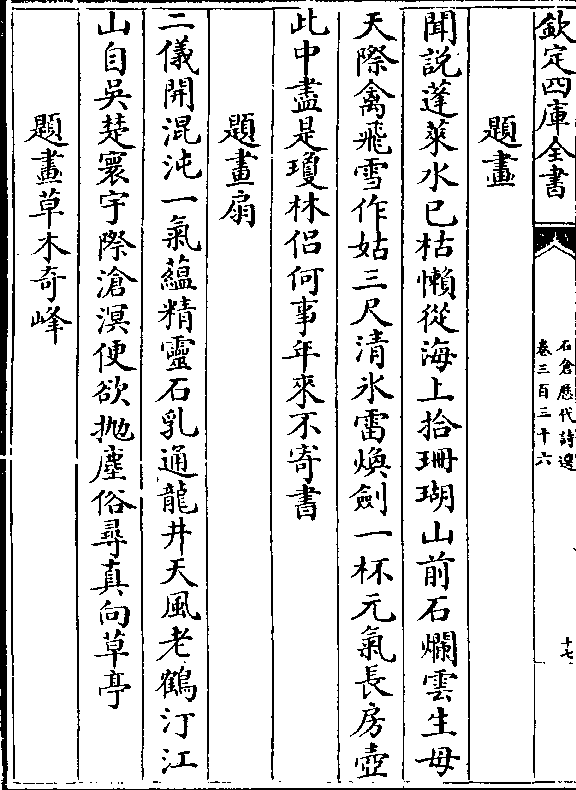 欽定四庫全書
石倉歷代詩選
卷三百三十六
十七
題畫
聞説蓬萊水已枯懶從海上拾珊瑚山前石爛雲生母
天際禽飛雪作姑三尺清氷雷煥劍一杯元氣長房壺
此中盡是瓊林侣何事年來不寄書
題畫扇
二儀開混沌一氣藴精靈石乳通龍井天風老鶴汀江
山自吳楚寰宇際滄溟便欲抛塵俗尋真向草亭
題畫草木奇峰